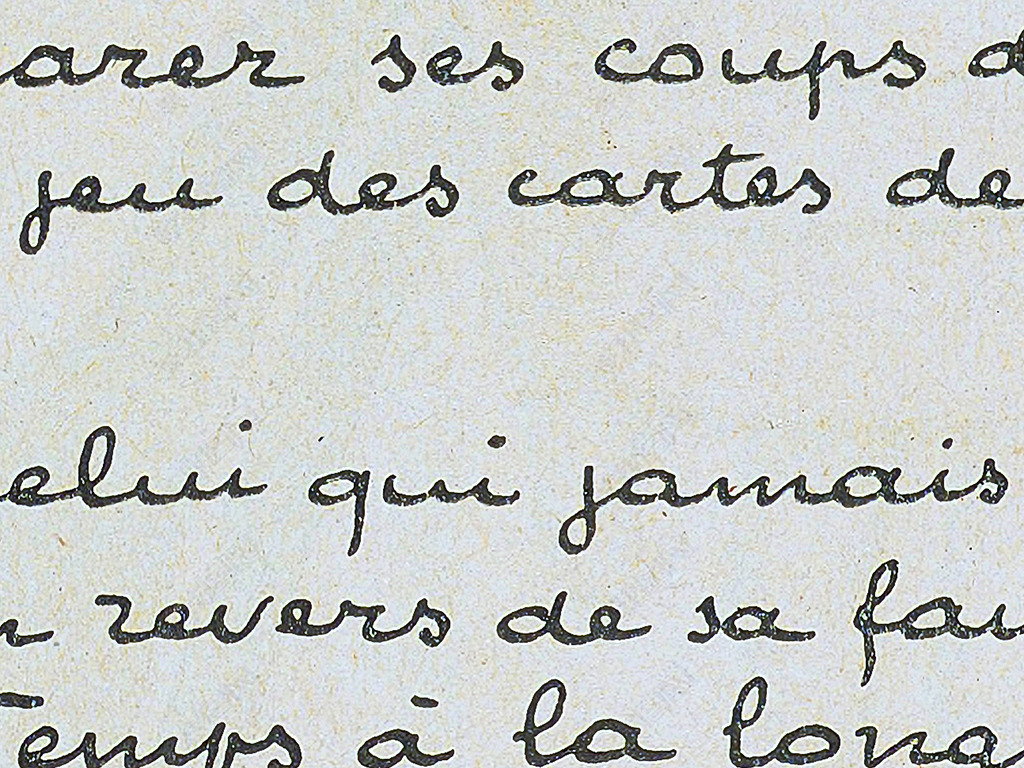 arer ses coups d
jeu des cartes de
elui qui jamais
revers de sa fau
Temps à la long